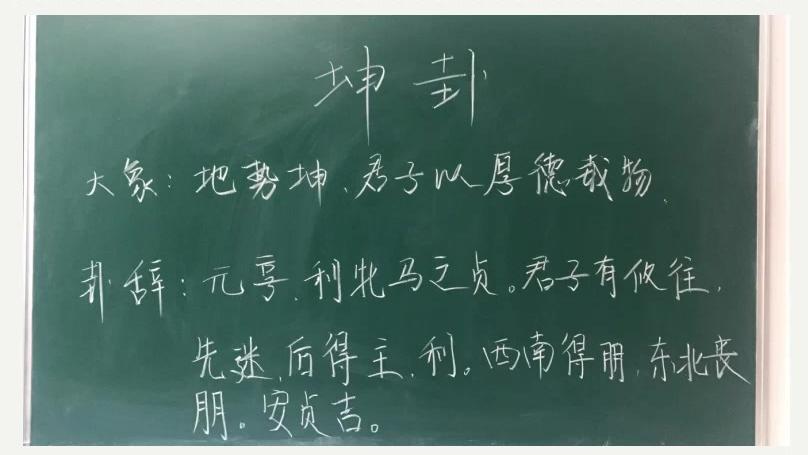 坤卦
大象：地势坤、君子以厚德载物、
卦辞：元亨、利牝马之贞。君子有攸往，
先迷，后得主、利。西南得朋，东北丧
朋。安贞吉。